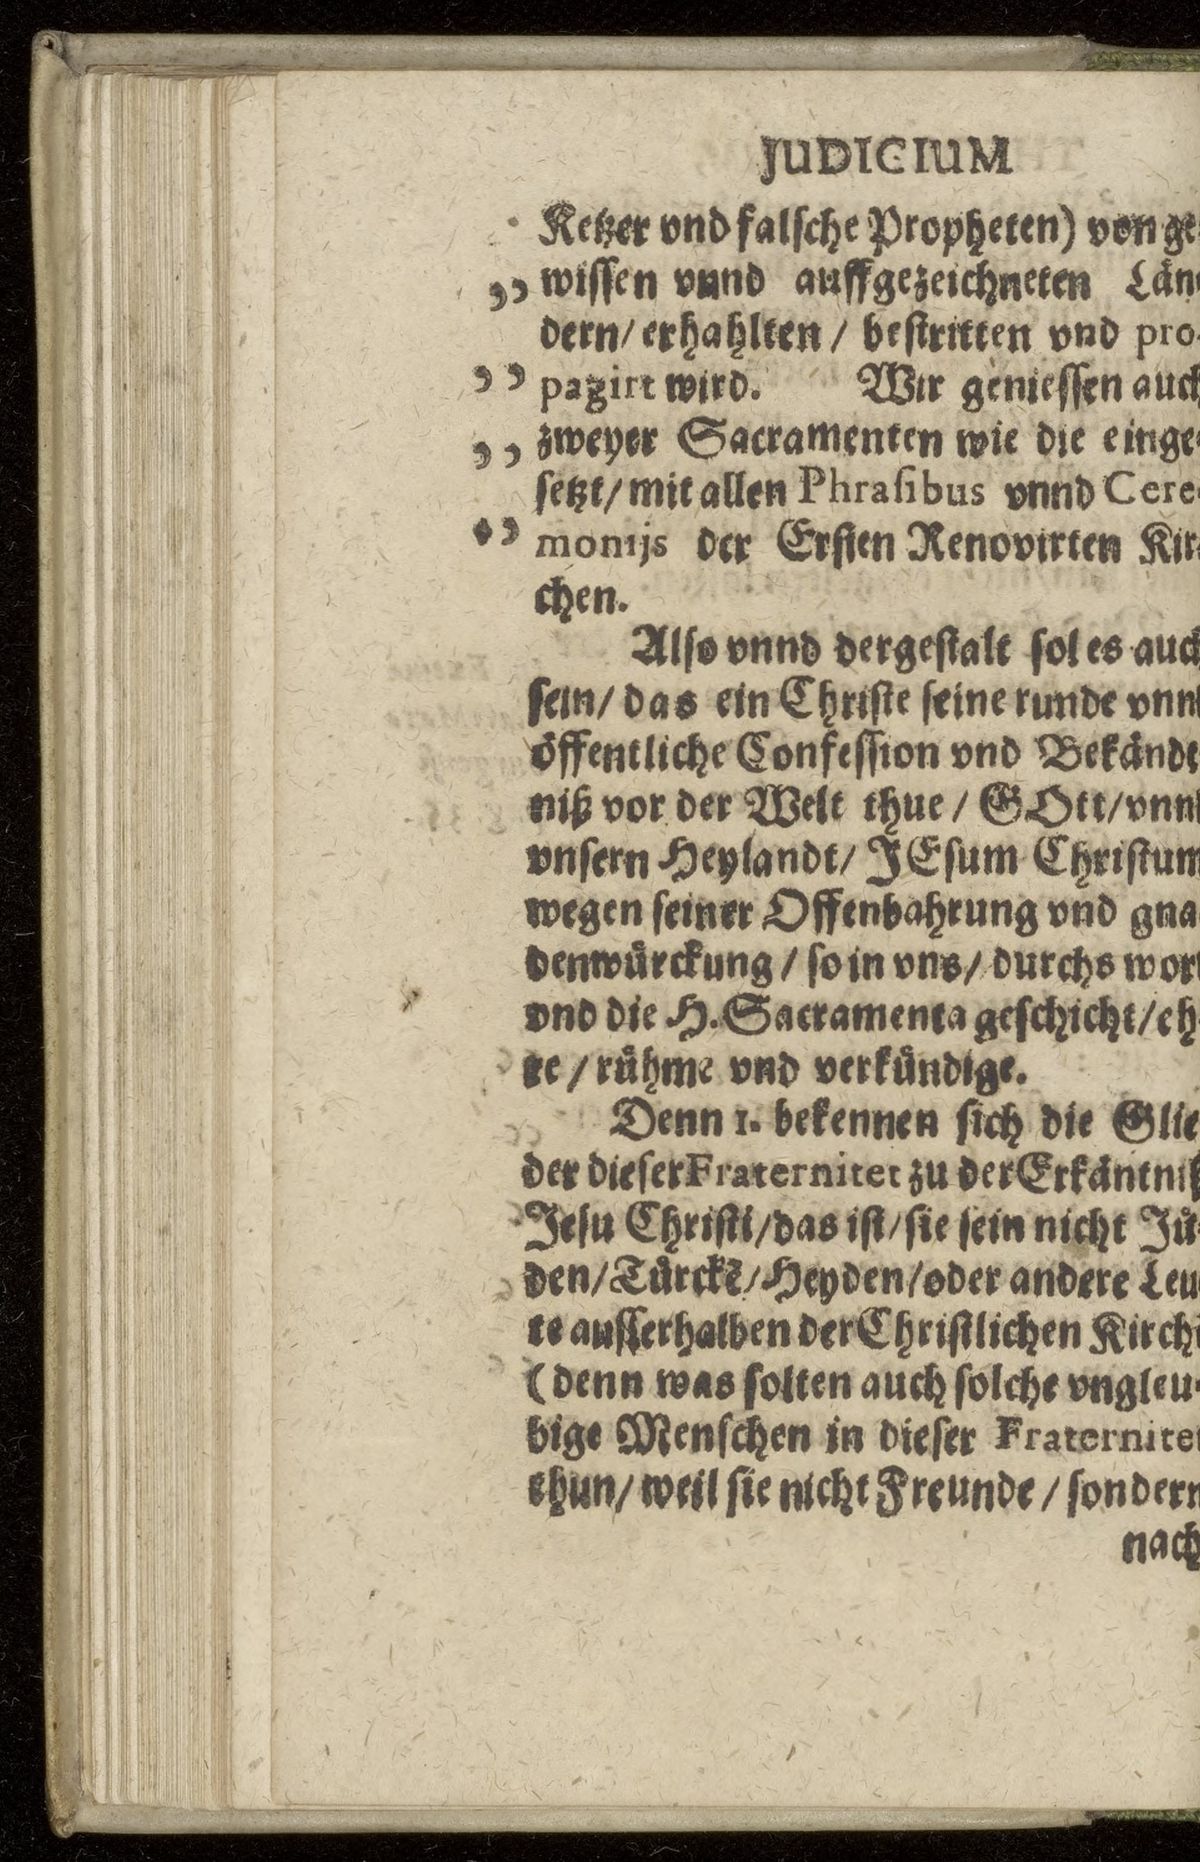 JUDICIUM
Ketzer vnd falsche Propheten) von ge-
„ wissen vnnd auffgezeichneten Län-
dern/ erhahlten / bestritten vnd pro-
„ pagirt wird. Wir geniessen auch
„ zweyer Sacramenten wie die einge-
setzt/ mit allen Phrasibus vnnd Cere-
„ monijs der Ersten Renovirten Kir-
chen.
Also vnnd dergestalt sol es auch
sein/ das ein Christe seine runde vnnd
öffentliche Confession vnd Bekändt-
niß vor der Welt thue / GOtt/ vnnd
vnsern Heylandt/ JEsum Christum
wegen seiner Offenbahrung vnd gna-
denwürckung / so in vns/ durchs wort
vnd die H. Sacramenta geschicht/ eh-
re / rühme vnd verkündige.
Denn 1. bekennen sich die Glie-
der dieser Fraternitet zu der Erkäntniß
Jesu Christi/ das ist/ sie sein nicht Jü-
den/ Türckē/ Heyden/ oder andere Leu-
te ausserhalben der Christlichen Kirchē
(denn was solten auch solche vngleu-
bige Menschen in dieser Fraternitet
thun/ weil sie nicht Freunde / sondern
nach